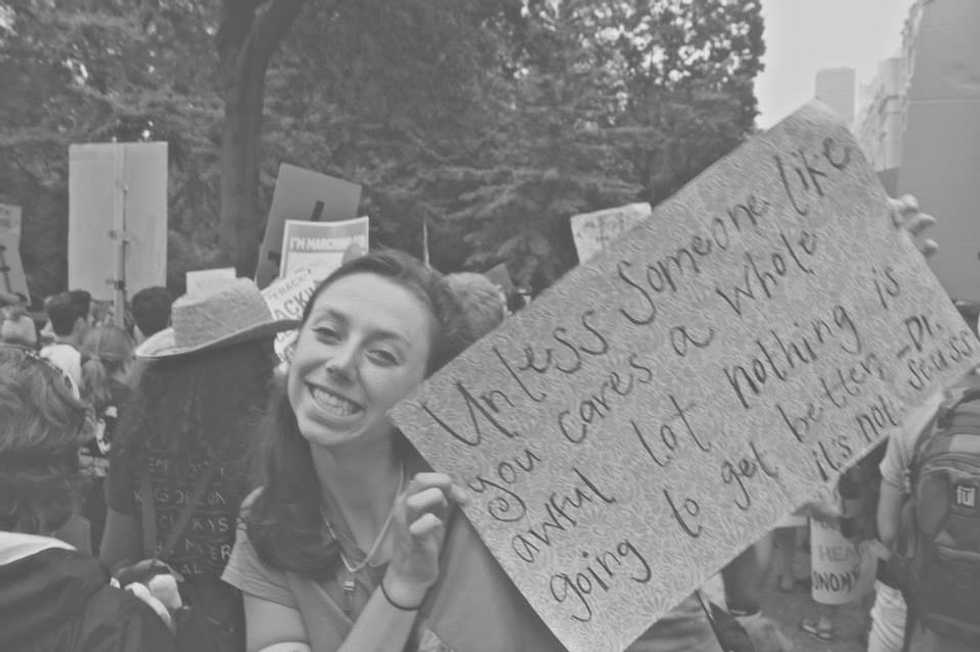 I'M MARCHING
Unless someone like
you cares a whole
awful lot nothing is
going to get better,
it's not. -Dr.
Seuss
ONOMY